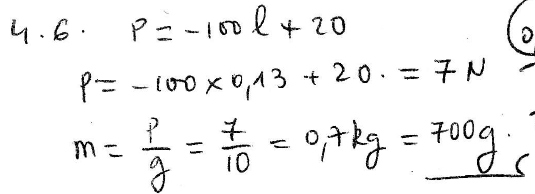 4.6. P = -100l + 20
P = -100 x 0,13 + 20. = 7 N
m = P/g = 7/10 = 0,7kg = 700g.